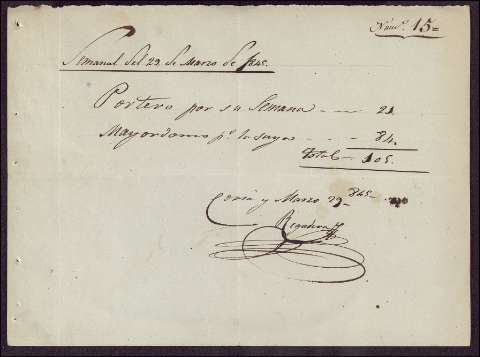 Núm.º 15=
Semanal del 29 de Marzo de 1845.
Portero por su Semana 21
Mayordomo p.r la suya 84.
Total 105.
Coria y Marzo 29 845